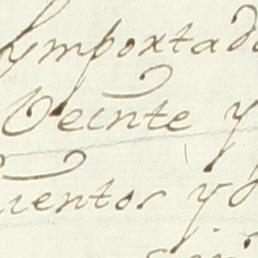 ymportado
Veinte y
cientos y